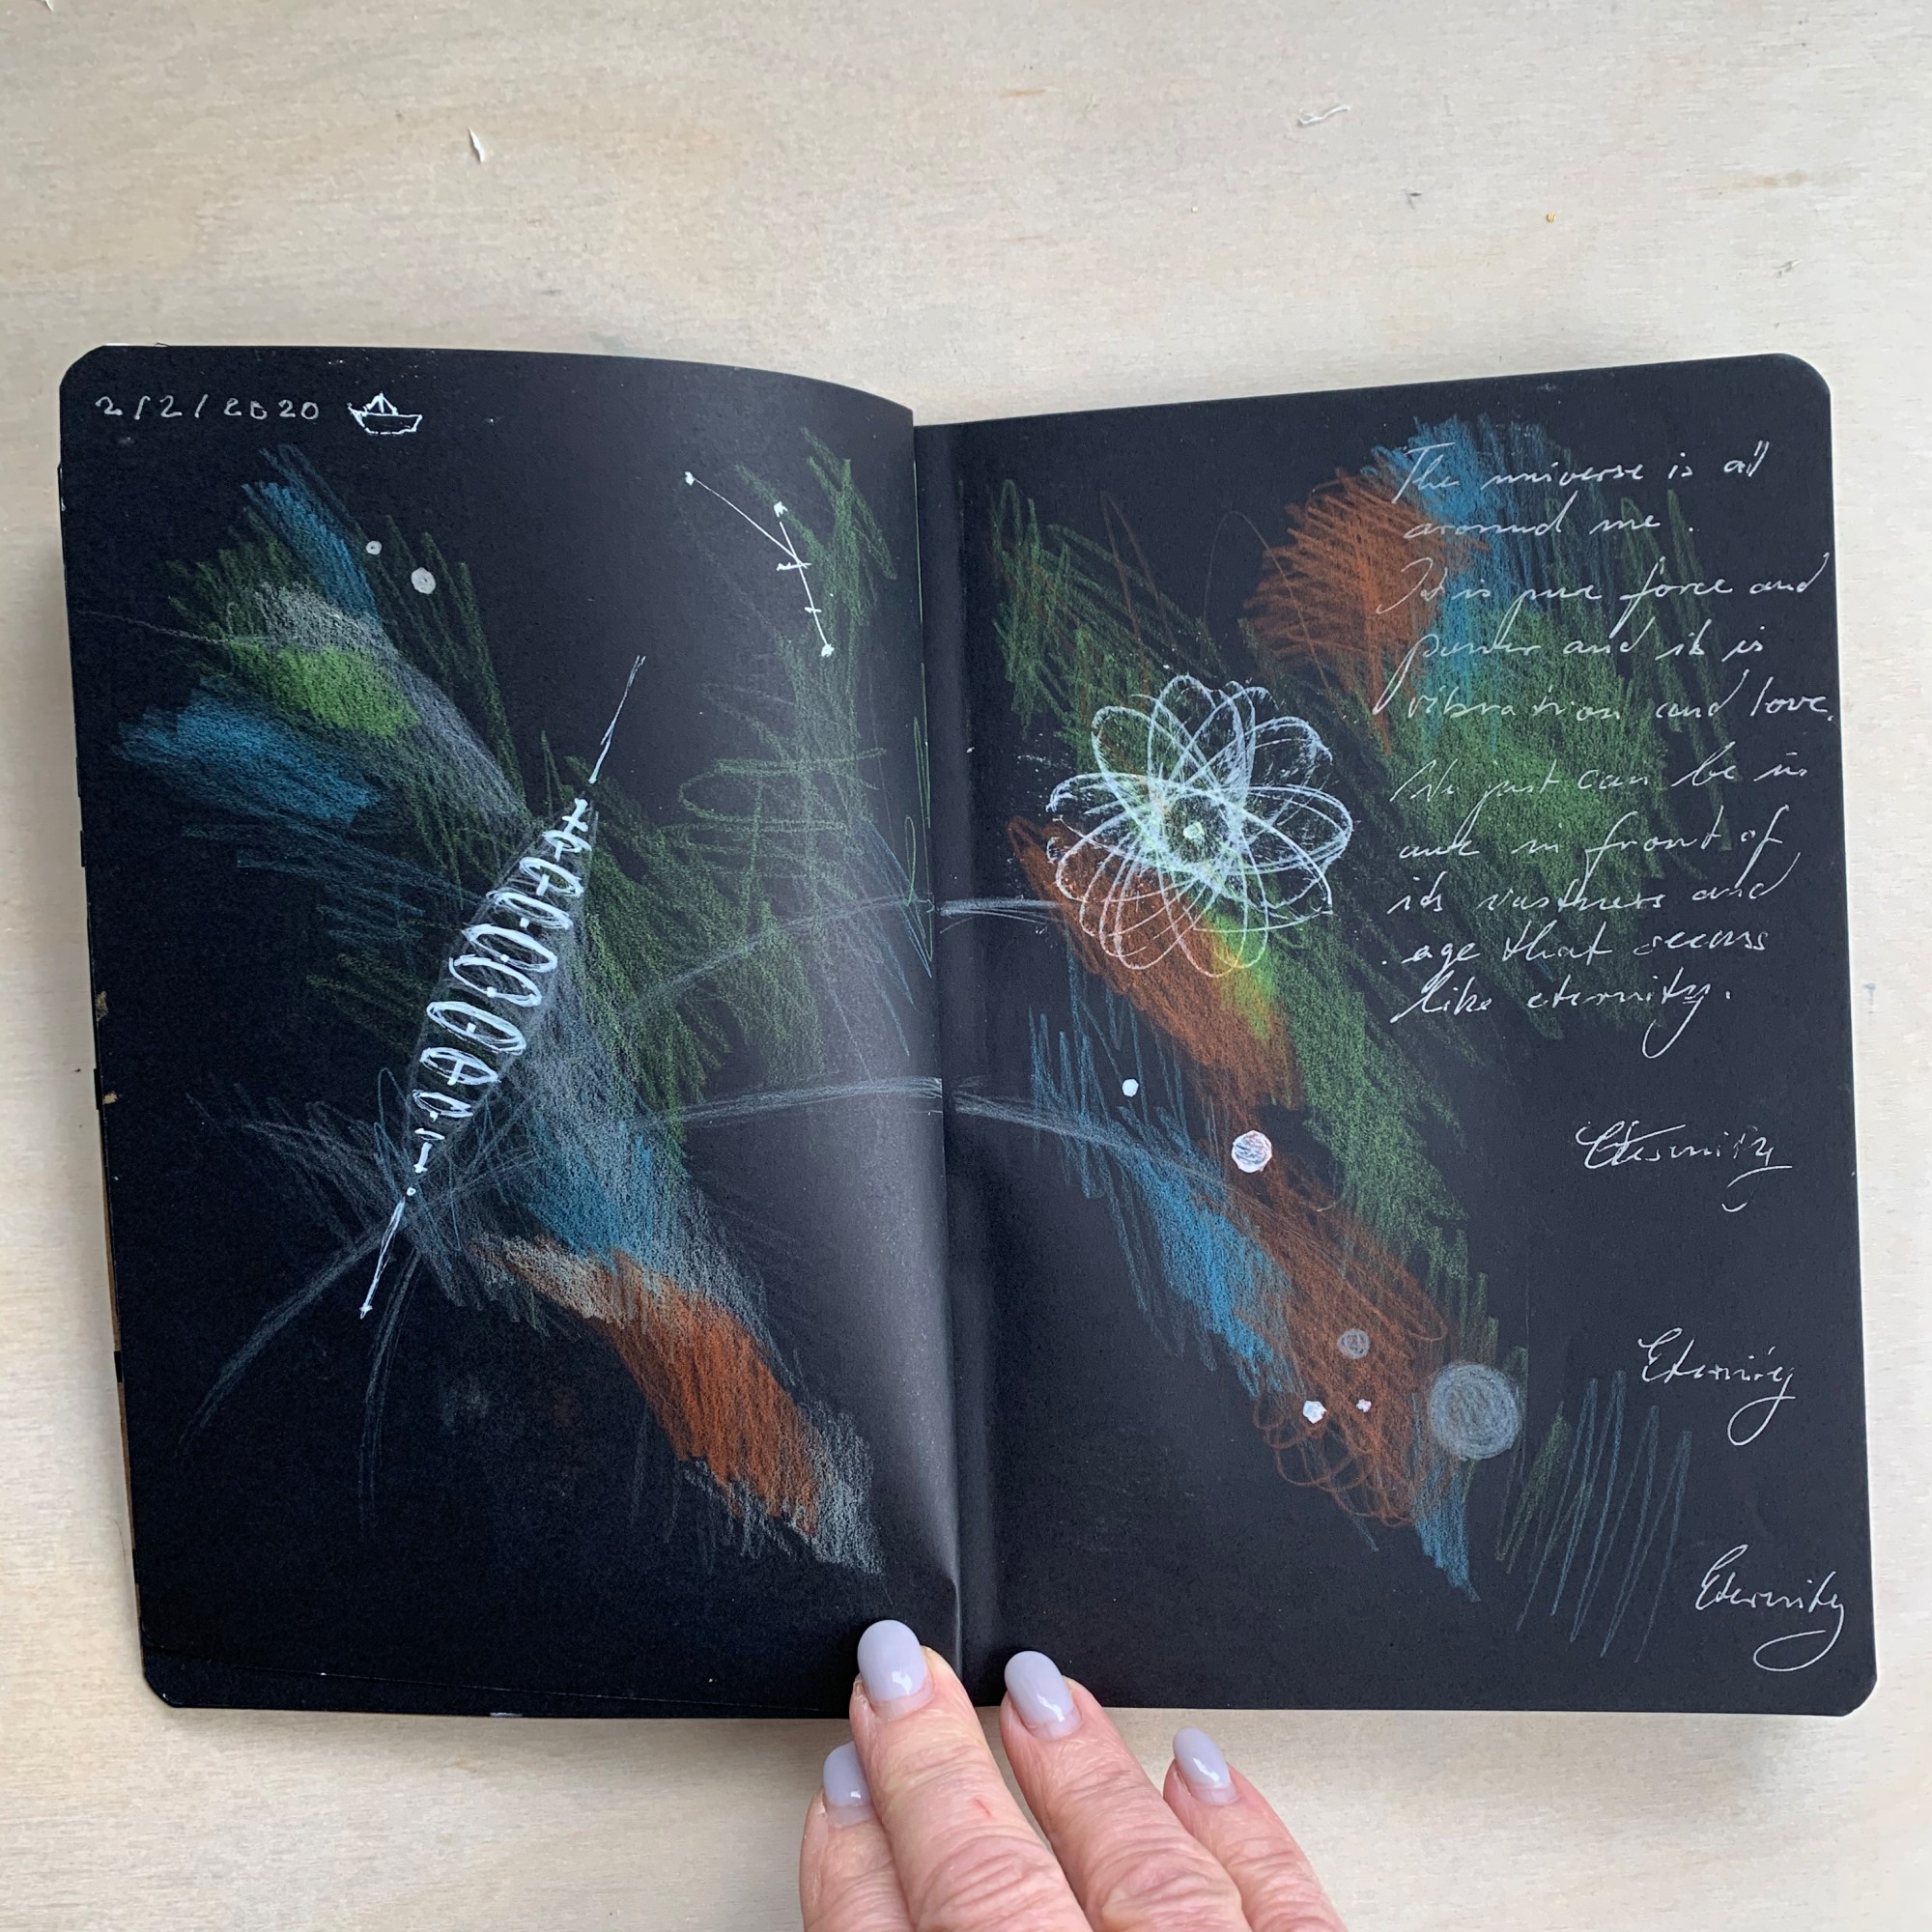 2/2/2020
The universe is all
around me.
It is pure force and
power and it is
vibration and love.
We just can be in
awe in front of
its vastness and
age that seems
like eternity.
Eternity
Eternity
Eternity